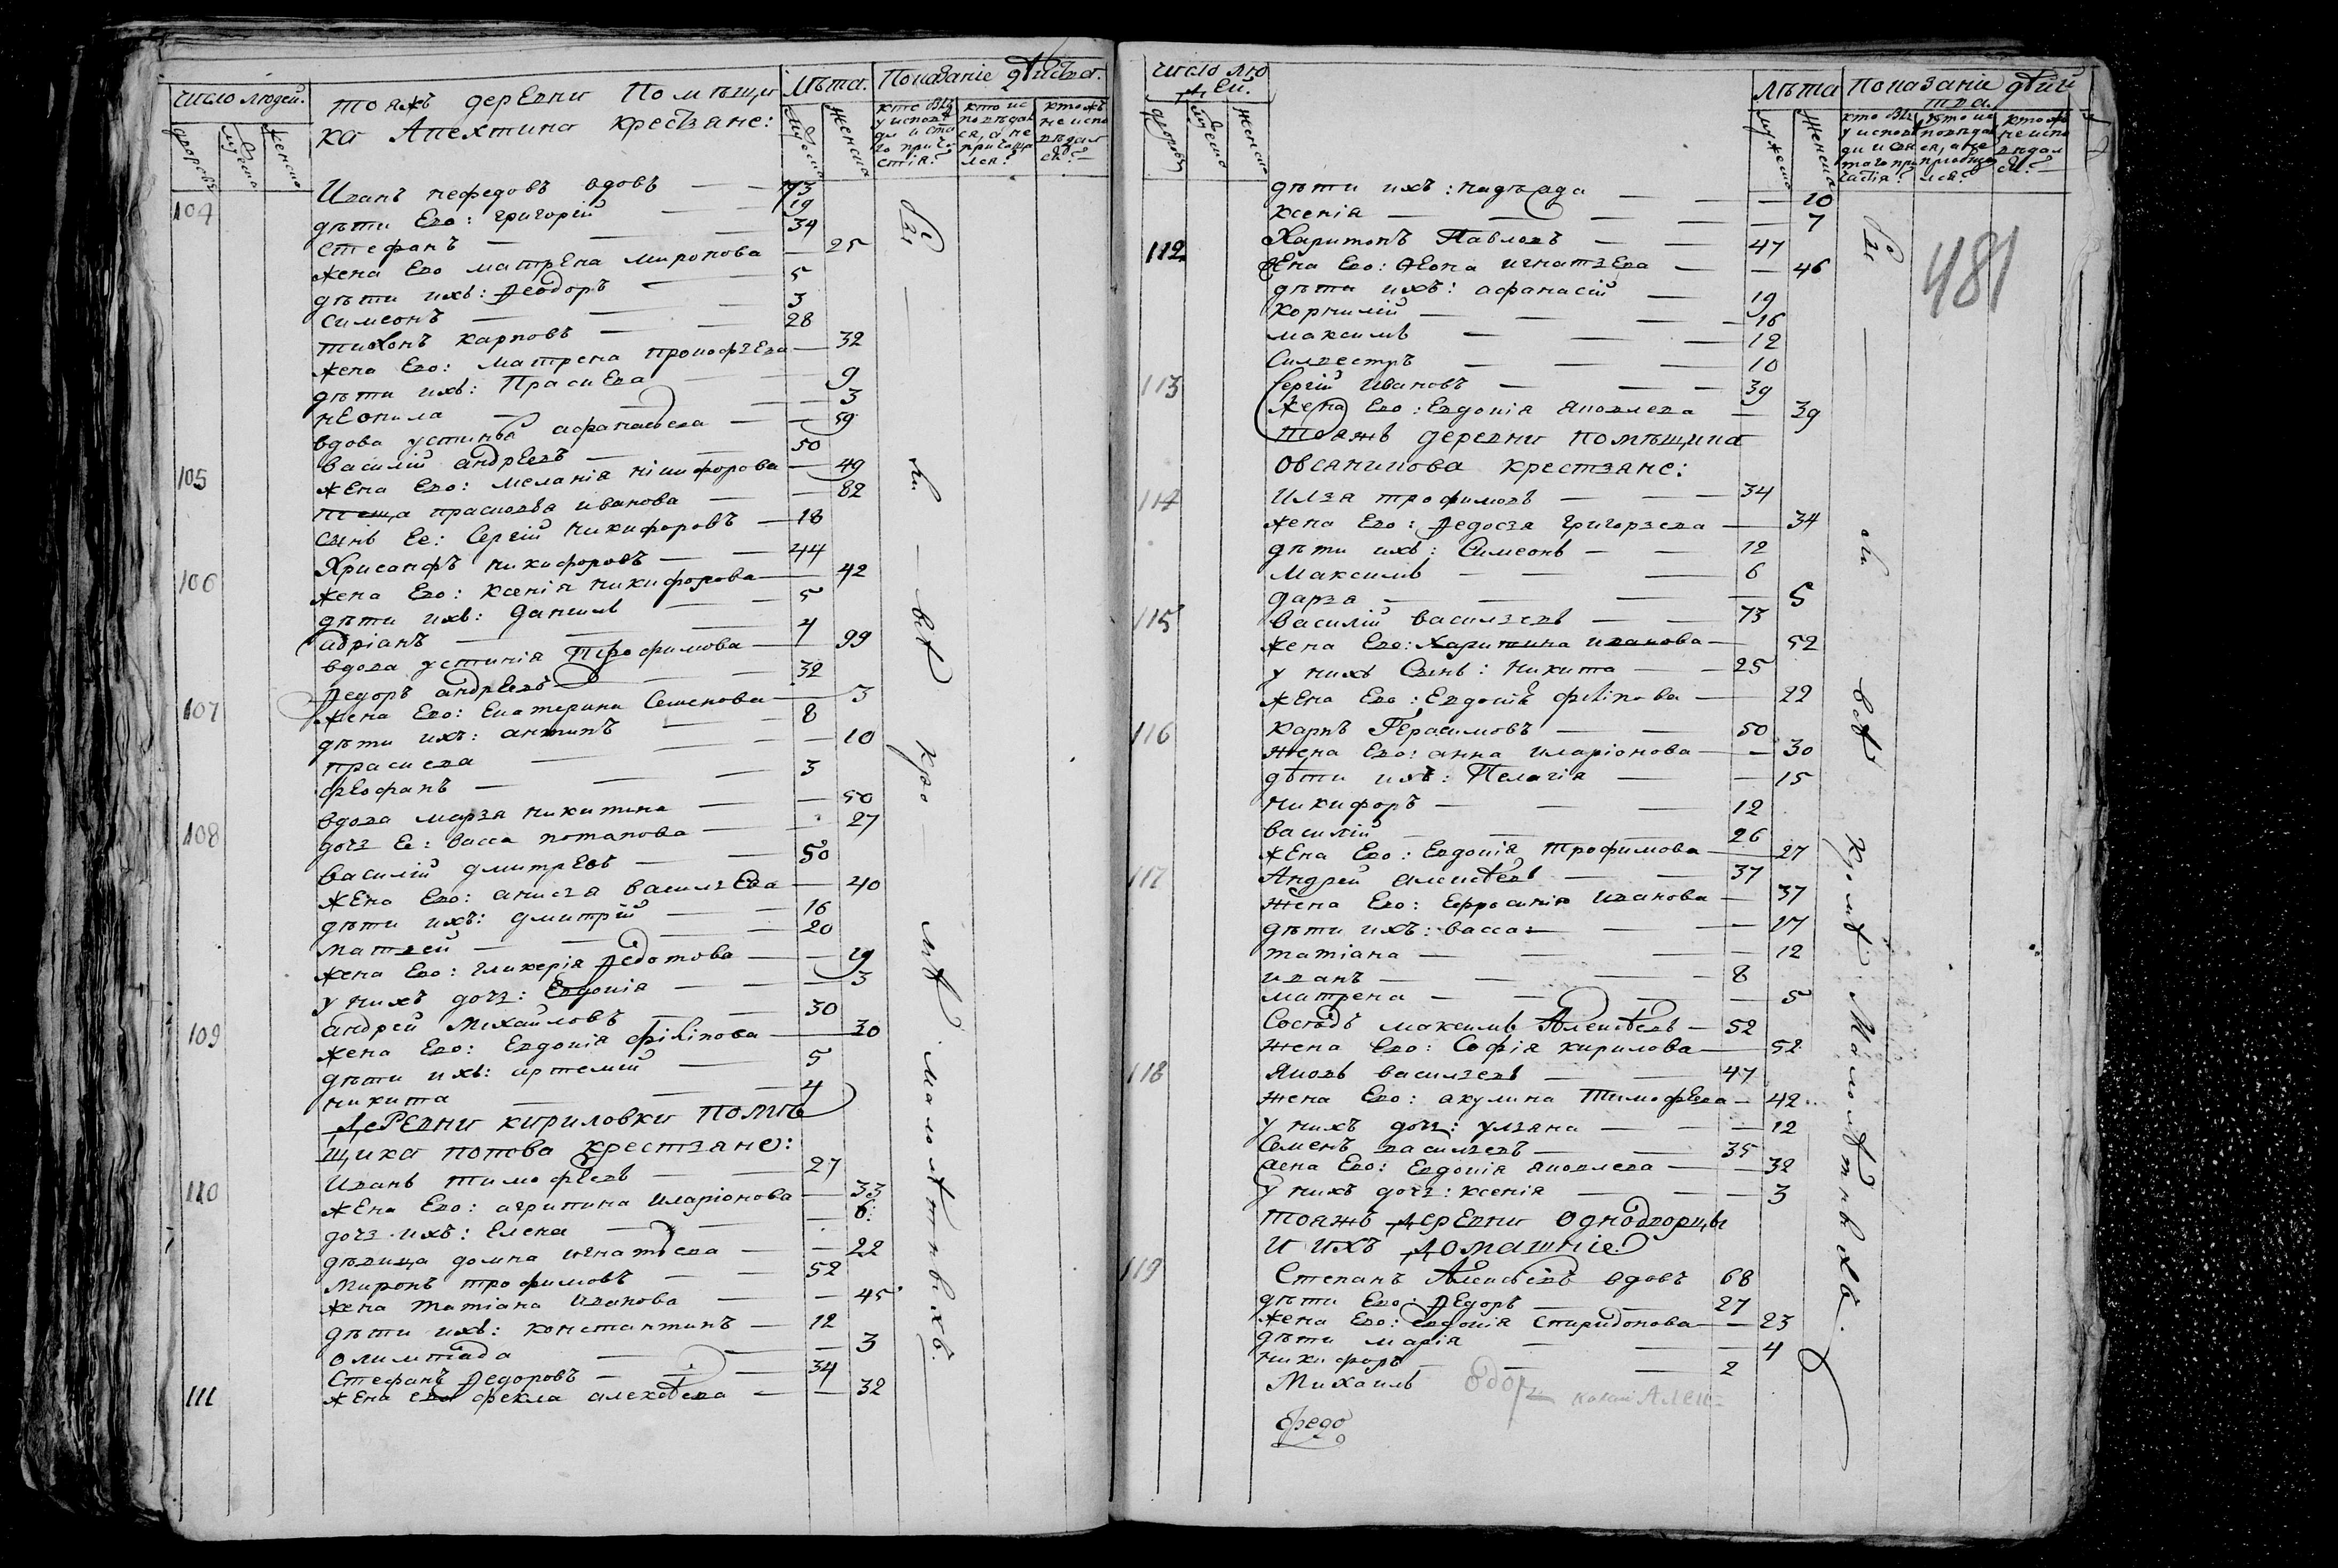 число людей.
дворовъ
мужеска
женска
тояжъ деревни Помѣщи
ка Апехтина крестьяне:
Лѣта.
мужеска
женска
Показаніе дѣйства.
кто былъ у исповѣди и святаго причастія?
кто исповѣдался, а не причащался?
кто жъ не исповѣдался?
104 Иванъ нефедовъ вдовъ — — 73
дѣти Ево: григорій — — 19
Стефанъ — — — 34
жена Ево матрена миронова — 25
дѣти ихъ: Ѳеодоръ — 5
симеонъ — — — 3
тихонъ карповъ — — 28
жена Ево: матрена прокофьева — 32
дѣти ихъ: Праскева — 9
неонила — — — 3
вдова устинья афанасьева — — 59
105 василій андреевъ — — 50
жена Ево: меланія никифорова — 49
теща прасковья иванова — — 82
сынъ Ее: Сергій никифоровъ — 18
106 Хрисанфъ никифоровъ — — 44
жена Ево: ксенія никифорова — 42
дѣти ихъ: даніилъ — — 5
адріанъ — — — 4
вдова устинія Трофимова — 99
107 Ѳедоръ андреевъ — — 32
жена Ево: Екатерина Семенова — 3
дѣти ихъ: антипъ — — 8
праскева — — — 10
феофанъ — — — 3
вдова марья никитина — — 50
108 дочь Ее: васса потапова — — 27
василій дмитревъ — — 50
жена Ево: анисья васильева — 40
дѣти ихъ: дмитрій — — 16
матвей — — — 20
жена Ево: гликерія Ѳедотова — — 19
у нихъ дочь: Евдокія — — — 3
109 андрей Михайловъ — — 30
жена Ево: Евдокія филипова — 30
дѣти ихъ: артемій — — 5
никита — — — 4
Деревни кириловки помѣ
щика попова крестьяне:
110 Иванъ тимофеевъ — — 27
жена Ево: агрипина иларіонова — 33
дочь ихъ: Елена — — 6:
дѣвица домна игнатьева — — 22
миронъ трофимовъ — — 52
жена татіана иванова — — 45
дѣти ихъ: константинъ — 12
олимпіада — — — 3
111 Стефанъ Ѳедоровъ — — 34
жена ево фекла алексѣева — — 32
бы — ли — всѣ кро мѣ малолѣтныхъ.
число лю
дей.
дворовъ
мужеска
женска
Лѣта
мужеска
женска
Показаніе дѣй
ства.
кто былъ у исповѣди и святаго причастія?
кто исповѣдался, а не приобщался?
кто жъ не исповѣдался?
481
дѣти ихъ: надѣжда — — — 10
ксенія — — — — 7
112. Харитонъ Павловъ — — 47
жена Ево: Ѳеона игнатьева — — 46
дѣти ихъ: афанасій — 19
корнилій — — — 16
максимъ — — — 12
Силвестръ — — — 10
113 Сергій ивановъ — — — 39
жена Ево: Евдокія яковлева — 39
тояжъ деревни помѣщика
овсяникова крестьяне:
114 илья трофимовъ — — — 34
жена Ево: Ѳедосья григорьева — 34
дѣти ихъ: Симеонъ — — 12
максимъ — — — 6
дарья — — — — 5
115 василій васильевъ — — 73
жена Ево: Харитина иванова — 52
у нихъ Сынъ: никита — — 25
жена Ево: Евдокія филипова — 22
116 карпъ Герасимовъ — — 50
жена Ево: анна иларіонова — — 30
дѣти ихъ: Пелагія — — 15
никифоръ — — — 12
василій — — — 26
жена Ево: Евдокія трофимова — 27
117 Андрей алексѣевъ — — 37
жена Ево: Ефросинія иванова — 37
дѣти ихъ: васса — — — 17
татіана — — — — 12
иванъ — — — 8
матрена — — — — 5
Сосѣдъ максимъ Алексѣевъ — 52
жена Ево: Софія кирилова — 52
118 Яковъ васильевъ — — 47
жена Ево: акулина тимофеева — 42
у нихъ дочь: ульяна — — — 12
Семенъ васильевъ — — 35
жена Ево: Евдокія яковлева — — 32
у нихъ дочь: ксенія — — — 3
тояжъ деревни однодворцы
и ихъ домашніе.
119 Степанъ Алексѣевъ вдовъ 68
дѣти Ево: Ѳедоръ — — 27
жена Ево: евдокія Спиридонова — — 23
дѣти марія — — — 4
никифоръ — — — 2
Михаилъ
федо
бы — ли всѣ кромѣ Малолѣтныхъ.